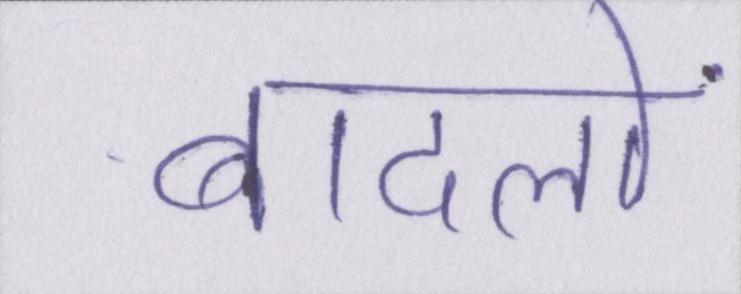 बादलों